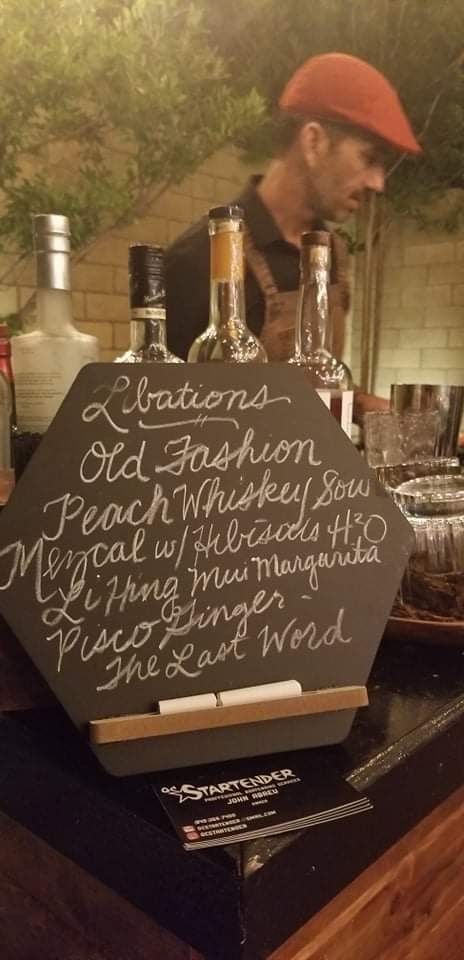 Libations
Old Fashion
Peach Whiskey Sour
Mezcal w/ Hibiscus H²O
Li Hing Mui Margarita
Pisco Ginger -
The Last Word
OC STARTENDER
PROFESSIONAL BARTENDING SERVICES
JOHN ABREU
OWNER
OCSTARTENDER